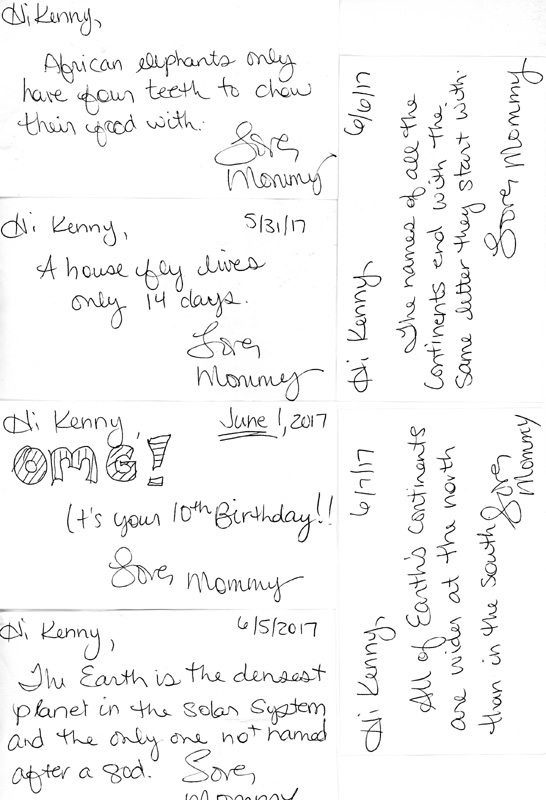 Hi Kenny,
African elephants only
have four teeth to chew
their food with.
Love,
Mommy
Hi Kenny, 5/31/17
A house fly lives
only 14 days.
Love,
Mommy
Hi Kenny, June 1, 2017
OMG!
It's your 10th Birthday!!
Love, Mommy
Hi Kenny, 6/5/2017
The Earth is the densest
planet in the Solar System
and the only one not named
after a god. Love,
Mommy
Hi Kenny, 6/6/17
The names of all the
continents end with the
same letter they start with.
Love, Mommy
Hi Kenny, 6/7/17
All of Earth's continents
are wider at the north
than in the south
Love,
Mommy